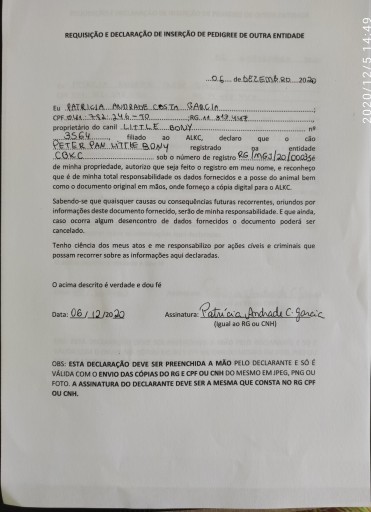 REQUISIÇÃO E DECLARAÇÃO DE INSERÇÃO DE PEDIGREE DE OUTRA ENTIDADE
06 de DEZEMBRO 2020
Eu PATRICIA ANDRADE COSTA GARCIA
CPF RG
proprietário do canil LITTLE BONY nº
3564, filiado ao ALKC, declaro que o cão
PETER PAN LITTLE BONY registrado na entidade
CBKC sob o número de registro RG/MGJ/20/
de minha propriedade, autorizo que seja feito o registro em meu nome, e reconheço
que é de minha total responsabilidade os dados fornecidos e a posse do animal bem
como o documento original em mãos, onde forneço a cópia digital para o ALKC.
Sabendo-se que quaisquer causas ou consequências futuras recorrentes, oriundos por
informações deste documento fornecido, serão de minha responsabilidade. E que ainda,
caso ocorra algum desencontro de dados fornecidos o documento poderá ser
cancelado.
Tenho ciência dos meus atos e me responsabilizo por ações cíveis e criminais que
possam recorrer sobre as informações aqui declaradas.
O acima descrito é verdade e dou fé
Data: 06/12/2020 Assinatura: Patrícia Andrade C. Garcia
(Igual ao RG ou CNH)
OBS: ESTA DECLARAÇÃO DEVE SER PREENCHIDA A MÃO PELO DECLARANTE E SÓ É
VÁLIDA COM O ENVIO DAS CÓPIAS DO RG E CPF OU CNH DO MESMO EM JPEG, PNG OU
FOTO. A ASSINATURA DO DECLARANTE DEVE SER A MESMA QUE CONSTA NO RG CPF
OU CNH.
2020/12/5 14:49